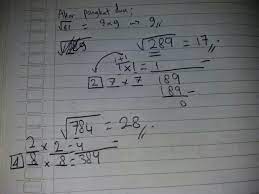 Akar pangkat dua;
√81 = 9 x 9 → 9
√289 = 17
1 x 1 = 1
2 7 x 7 189
189 -
0
√784 = 28
2 x 2 = 4
4 8 x 8 = 384